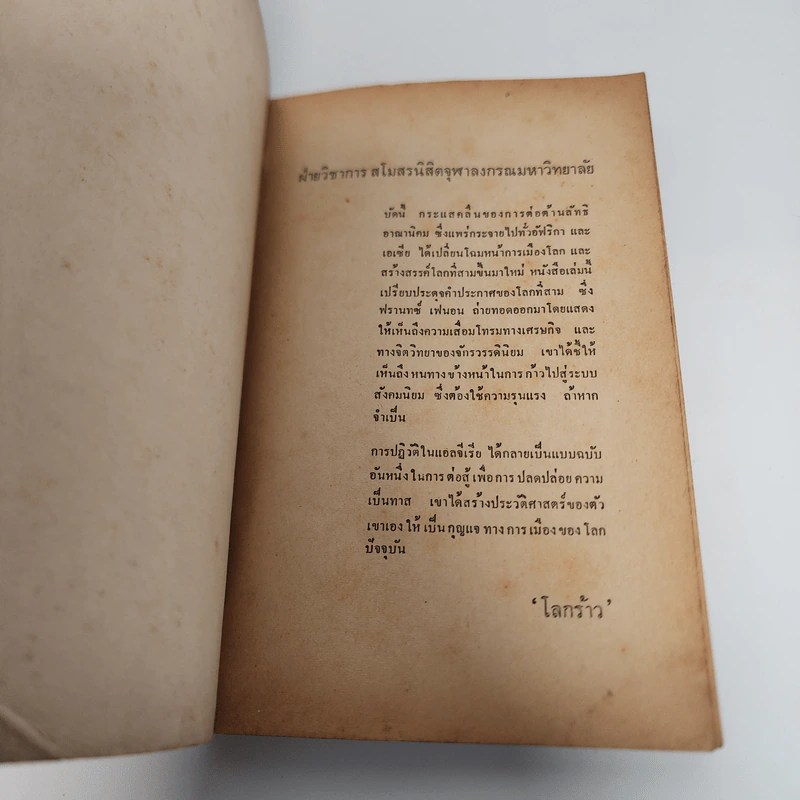 ฝ่ายวิชาการ สโมสรนิสิตจุฬาลงกรณมหาวิทยาลัย
บัดนี้ กระแสคลื่นของการต่อต้านลัทธิ
อาณานิคม ซึ่งแพร่กระจายไปทั่วอัฟริกา และ
เอเซีย ได้เปลี่ยนโฉมหน้าการเมืองโลก และ
สร้างสรรค์โลกที่สามขึ้นมาใหม่ หนังสือเล่มนี้
เปรียบประดุจคำประกาศของโลกที่สาม ซึ่ง
ฟรานทซ์ เฟนอน ถ่ายทอดออกมาโดยแสดง
ให้เห็นถึงความเสื่อมโทรมทางเศรษฐกิจ และ
ทางจิตวิทยาของจักรวรรดินิยม เขาได้ชี้ให้
เห็นถึง หนทาง ข้างหน้าในการ ก้าวไปสู่ ระบบ
สังคมนิยม ซึ่งต้องใช้ความรุนแรง ถ้าหาก
จำเป็น
การปฏิวัติในแอลจีเรีย ได้กลายเป็นแบบฉบับ
อันหนึ่ง ในการ ต่อสู้ เพื่อการ ปลดปล่อย ความ
เป็นทาส เขาได้สร้างประวัติศาสตร์ของตัว
เขาเอง ให้ เป็น กุญแจ ทาง การ เมือง ของ โลก
ปัจจุบัน
‘โลกร้าว’